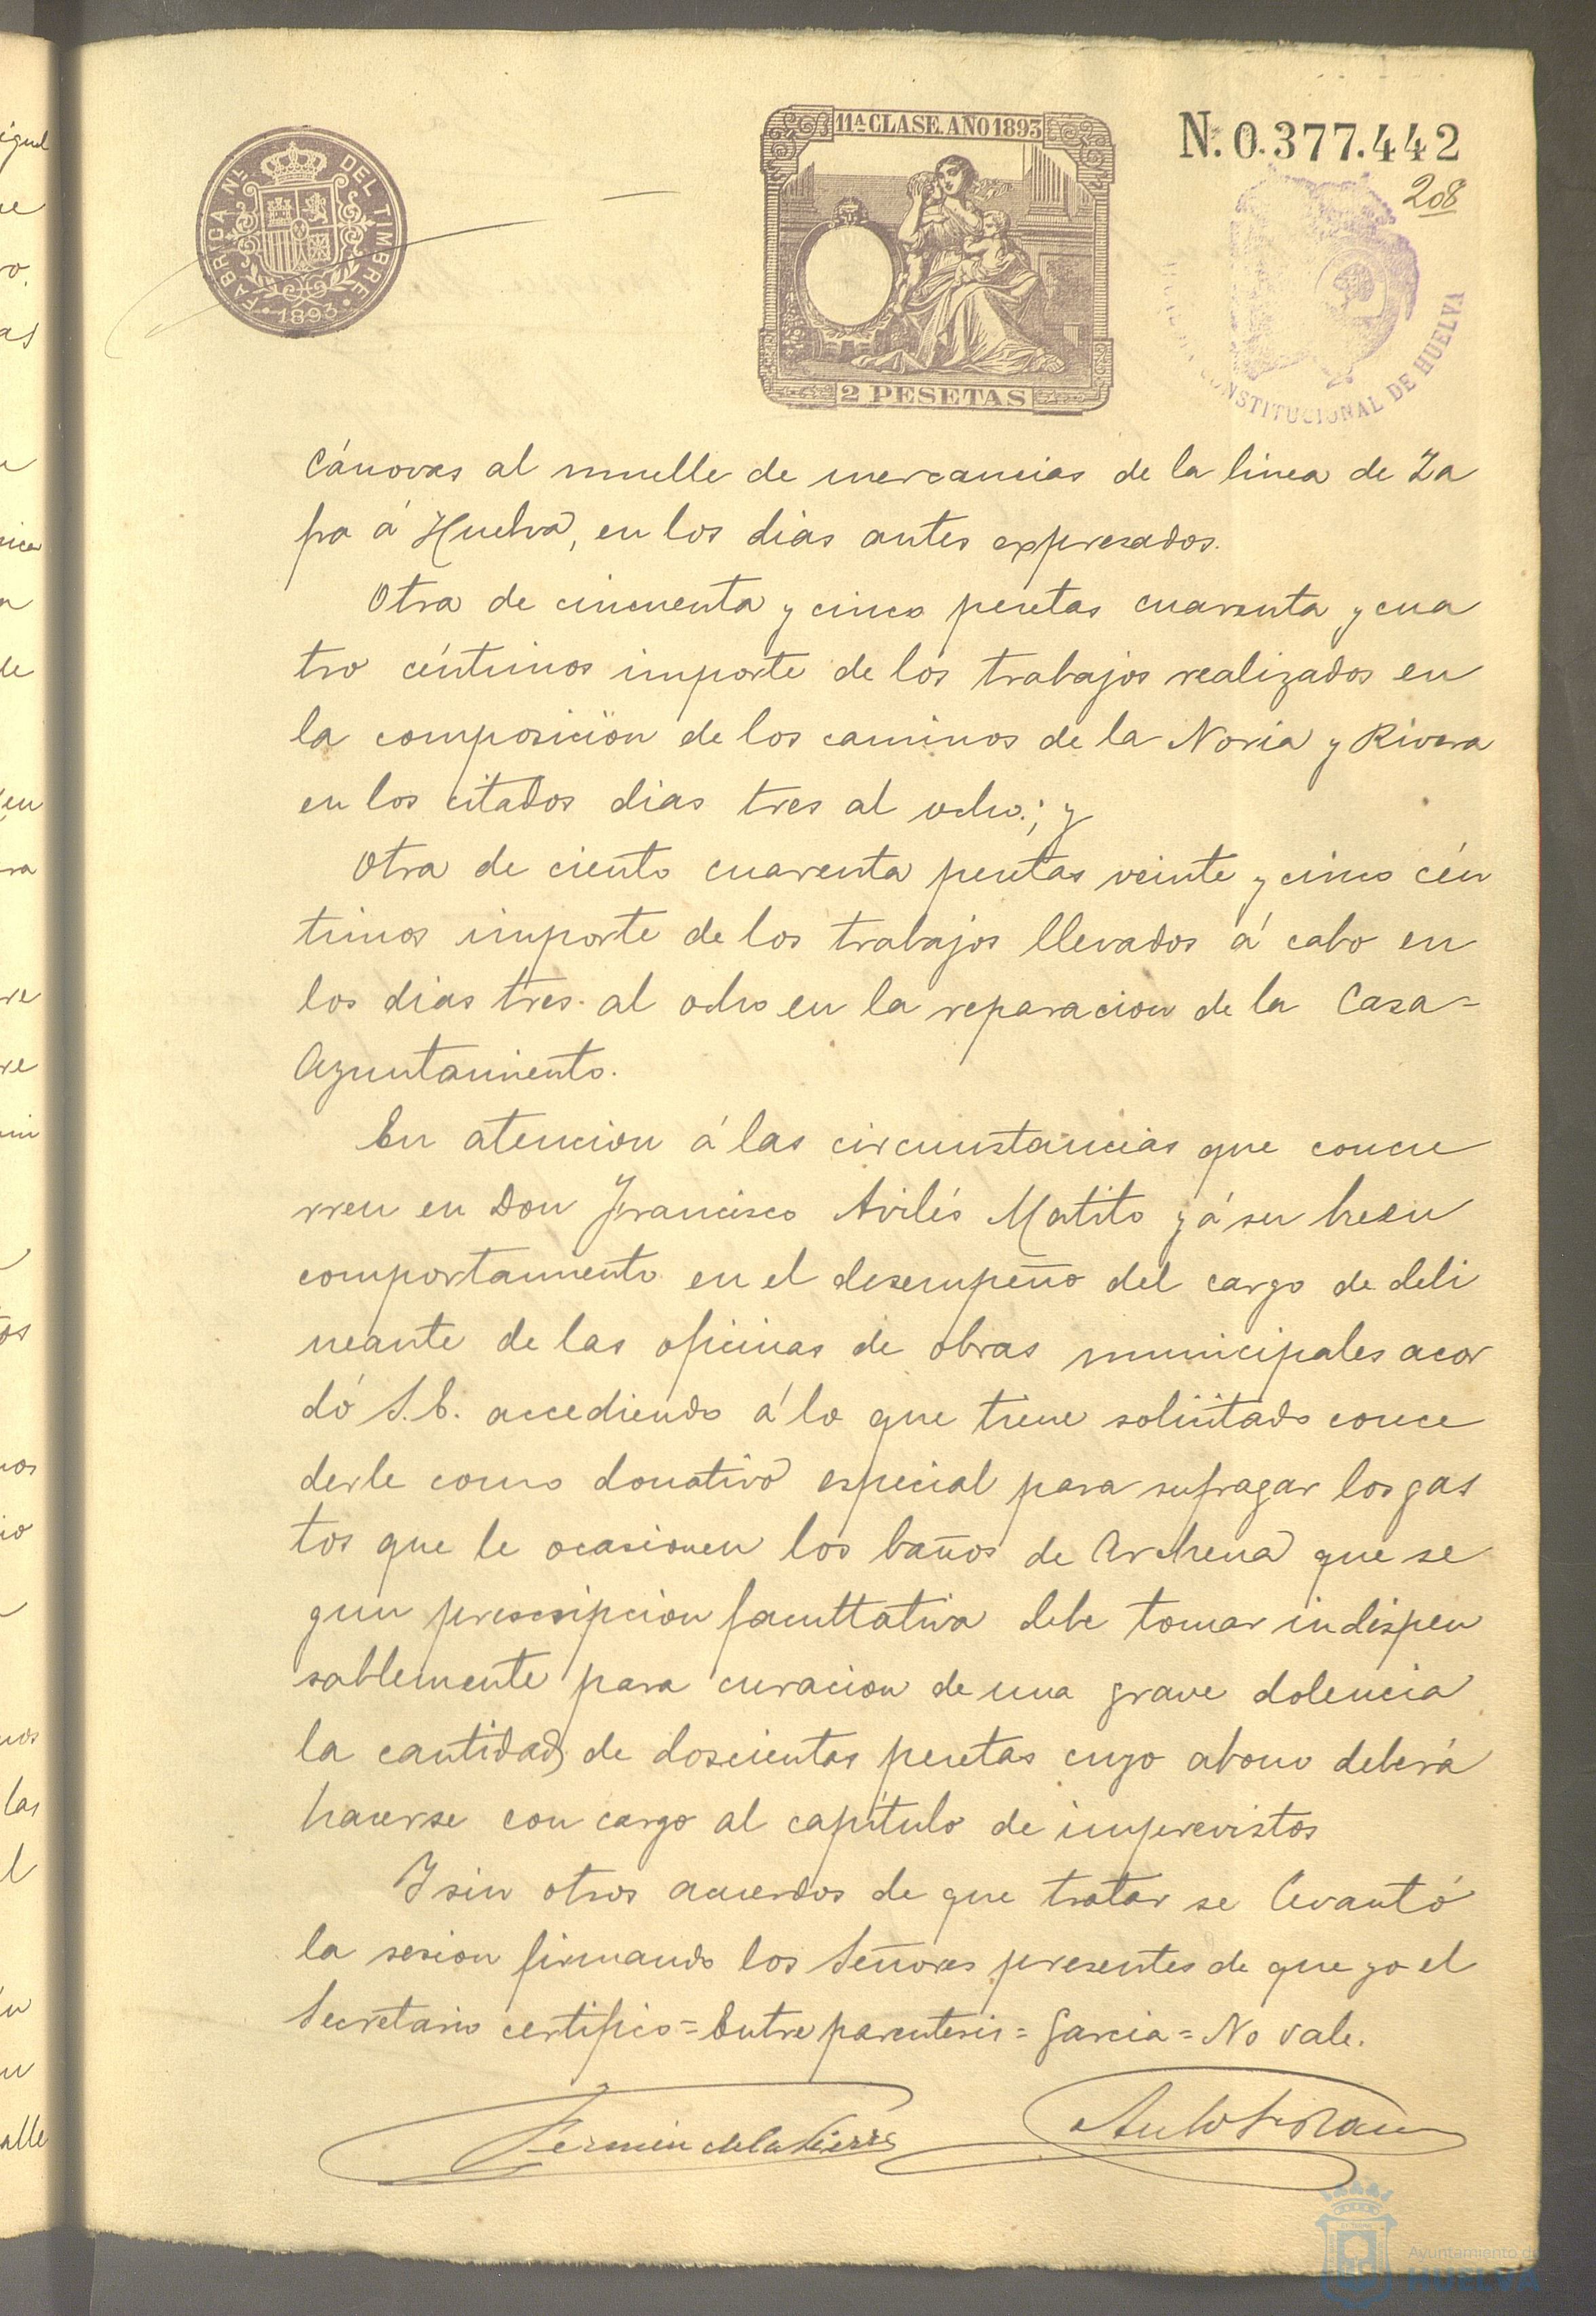 FÁBRICA NL. DEL TIMBRE
1893
11ª CLASE. AÑO 1893
2 PESETAS
N. 0.377.442
208
CONSTITUCIONAL DE HUELVA
Cánovas al muelle de mercancias de la linea de Za
fra á Huelva, en los dias antes expresados.
Otra de cincuenta y cinco pesetas cuarenta y cua
tro céntimos importe de los trabajos realizados en
la composición de los caminos de la Noria y Rivera
en los citados dias tres al ocho; y
Otra de ciento cuarenta pesetas veinte y cinco cén
timos importe de los trabajos llevados á cabo en
los dias tres al ocho en la reparacion de la Casa=
Ayuntamiento.
En atencion á las circunstancias que concu
rren en Don Francisco Avilés Matito y á su buen
comportamiento en el desempeño del cargo de deli
neante de las oficinas de obras municipales acor
dó S.E. accediendo á lo que tiene solicitado conce
derle como donativo especial para sufragar los gas
tos que le ocasionen los baños de Archena que se
gun prescripcion facultativa debe tomar indispen
sablemente para curacion de una grave dolencia
la cantidad de doscientas pesetas cuyo abono deberá
hacerse con cargo al capítulo de imprevistos
Y sin otros acuerdos de que tratar se levantó
la sesion firmando los Señores presentes de que yo el
Secretario certifico = Entre parentesis = Garcia = No vale.
Fermin de la Sierra
Ayuntamiento de
HUELVA